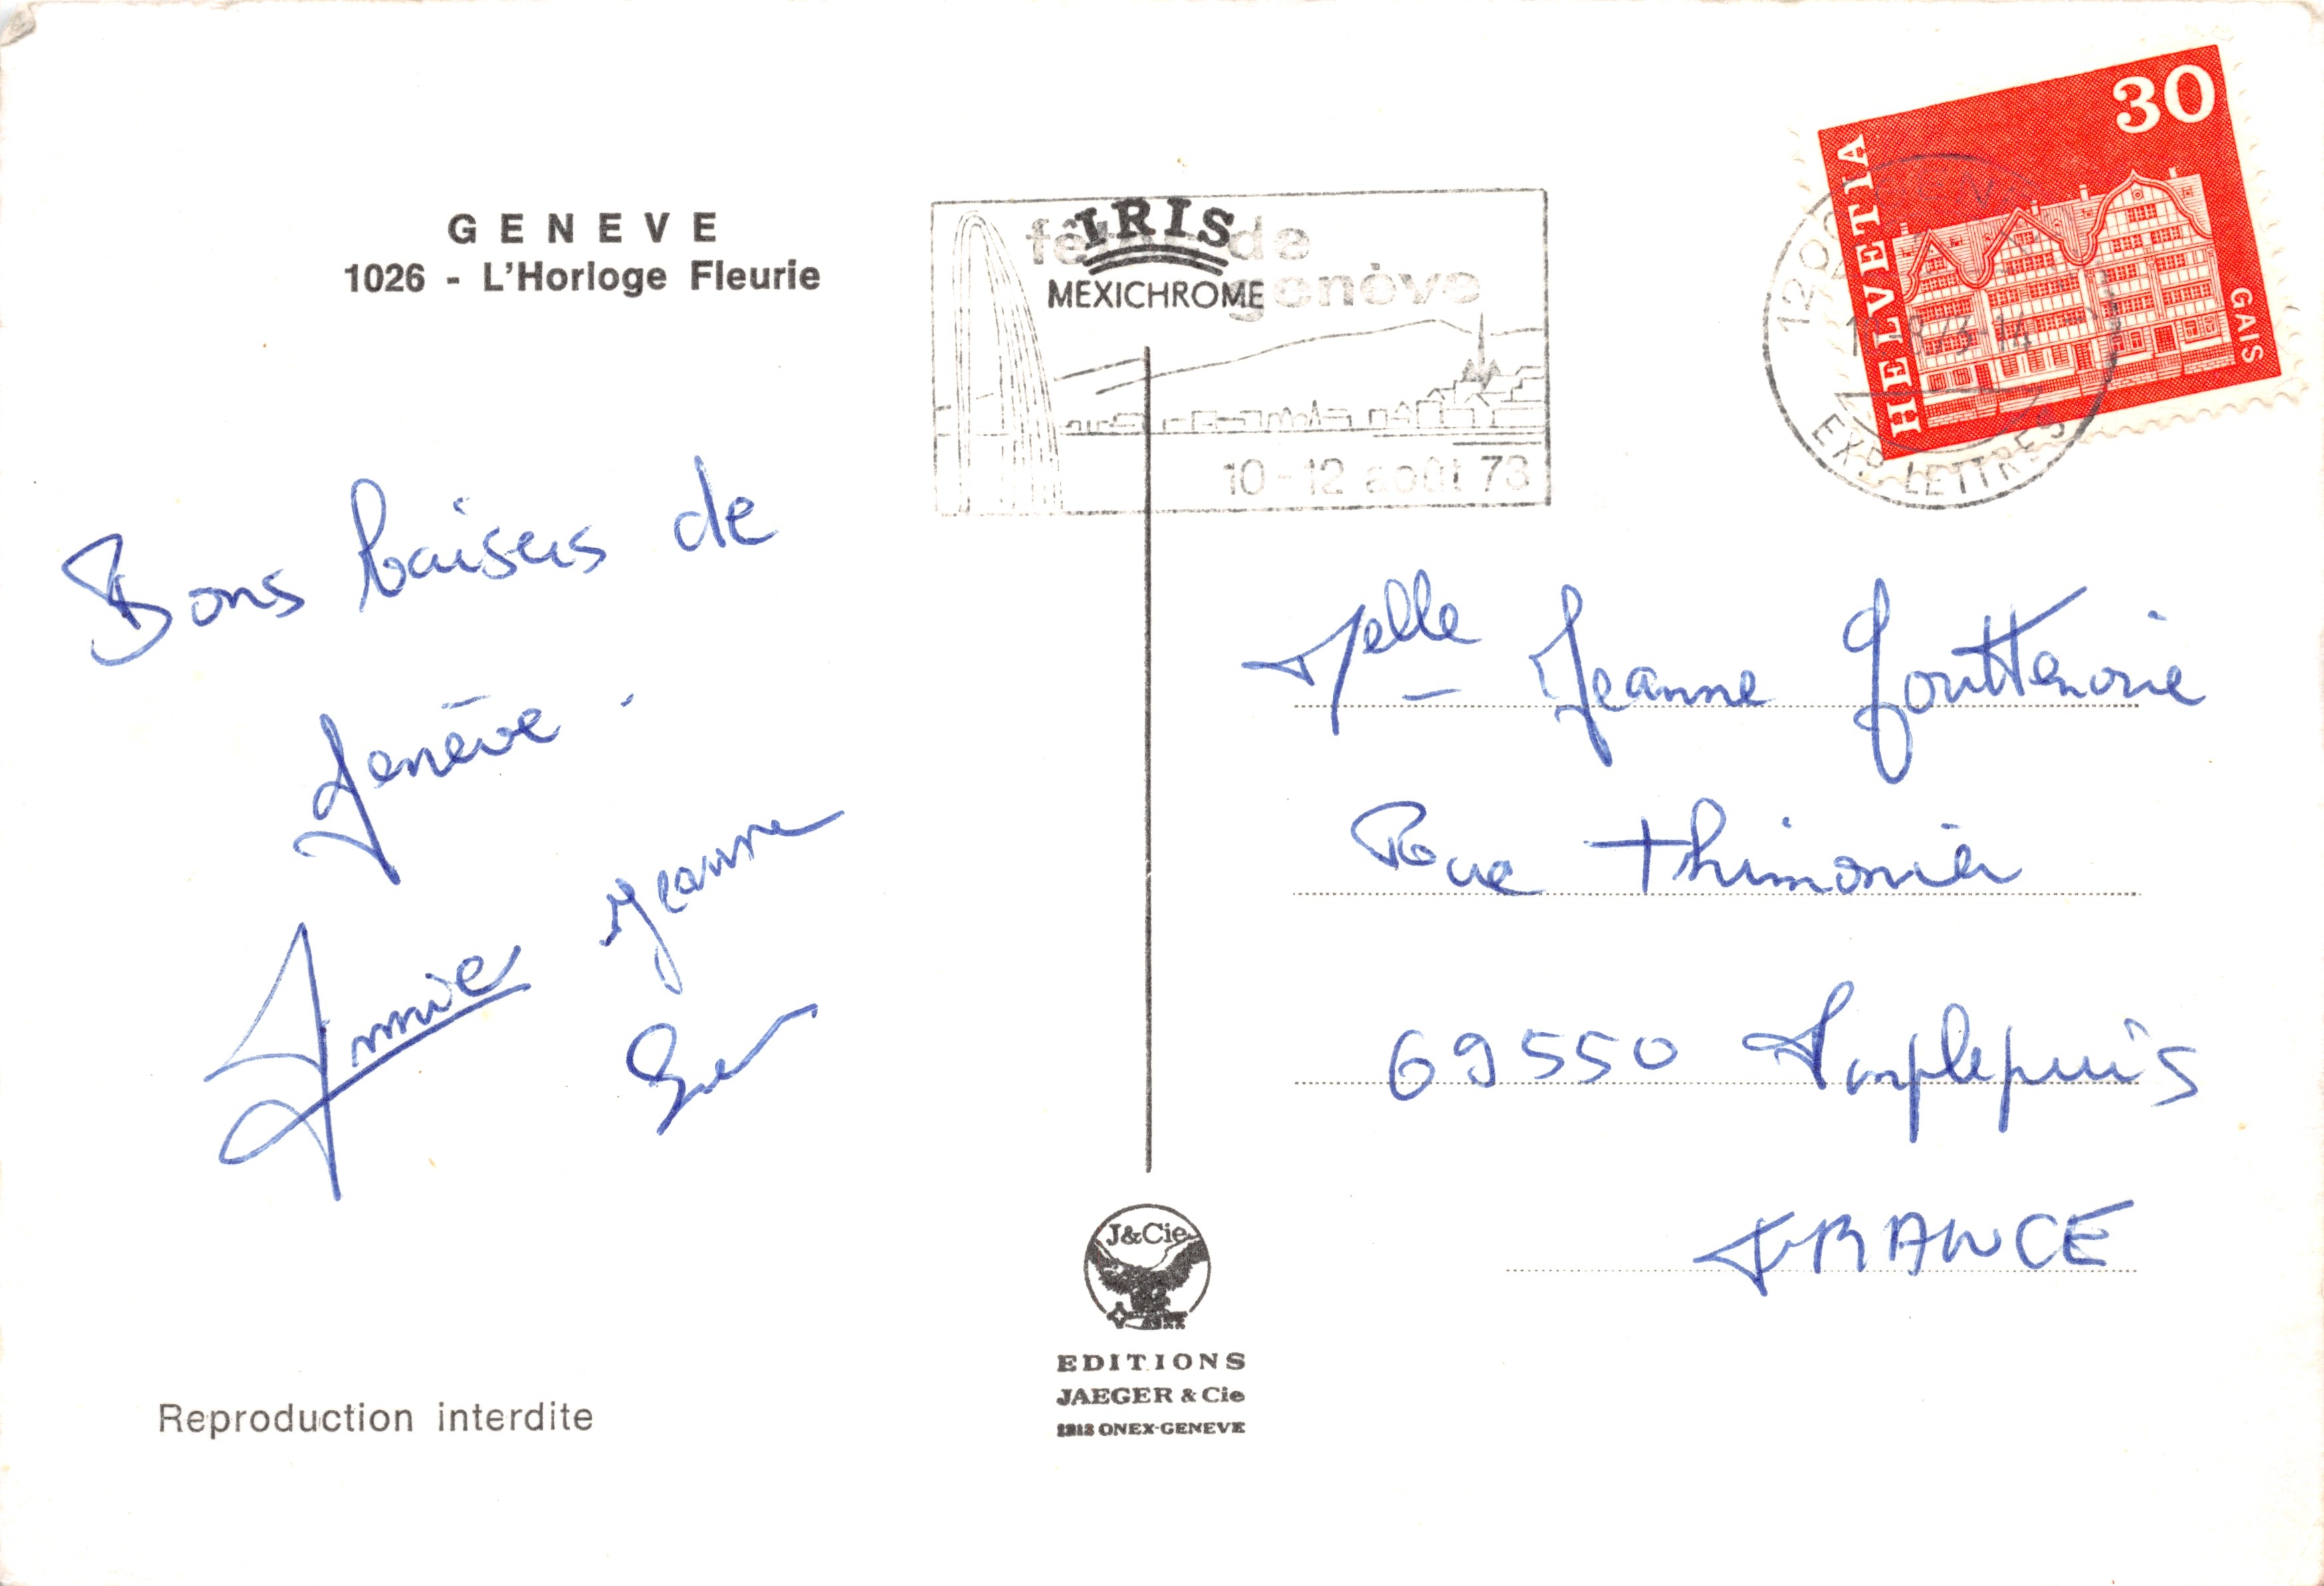 GENEVE
1026 - L'Horloge Fleurie
IRIS
MEXICHROME
fêtes de
genève
10-12 août 73
HELVETIA
30
GAIS
EXP. LETTRES
Bons baisers de
Genève.
Annie Jeanne
Melle Jeanne Gouttenoire
Rue Thimonier
69550 Amplepuis
FRANCE
J&Cie
EDITIONS
JAEGER & Cie
1213 ONEX-GENEVE
Reproduction interdite